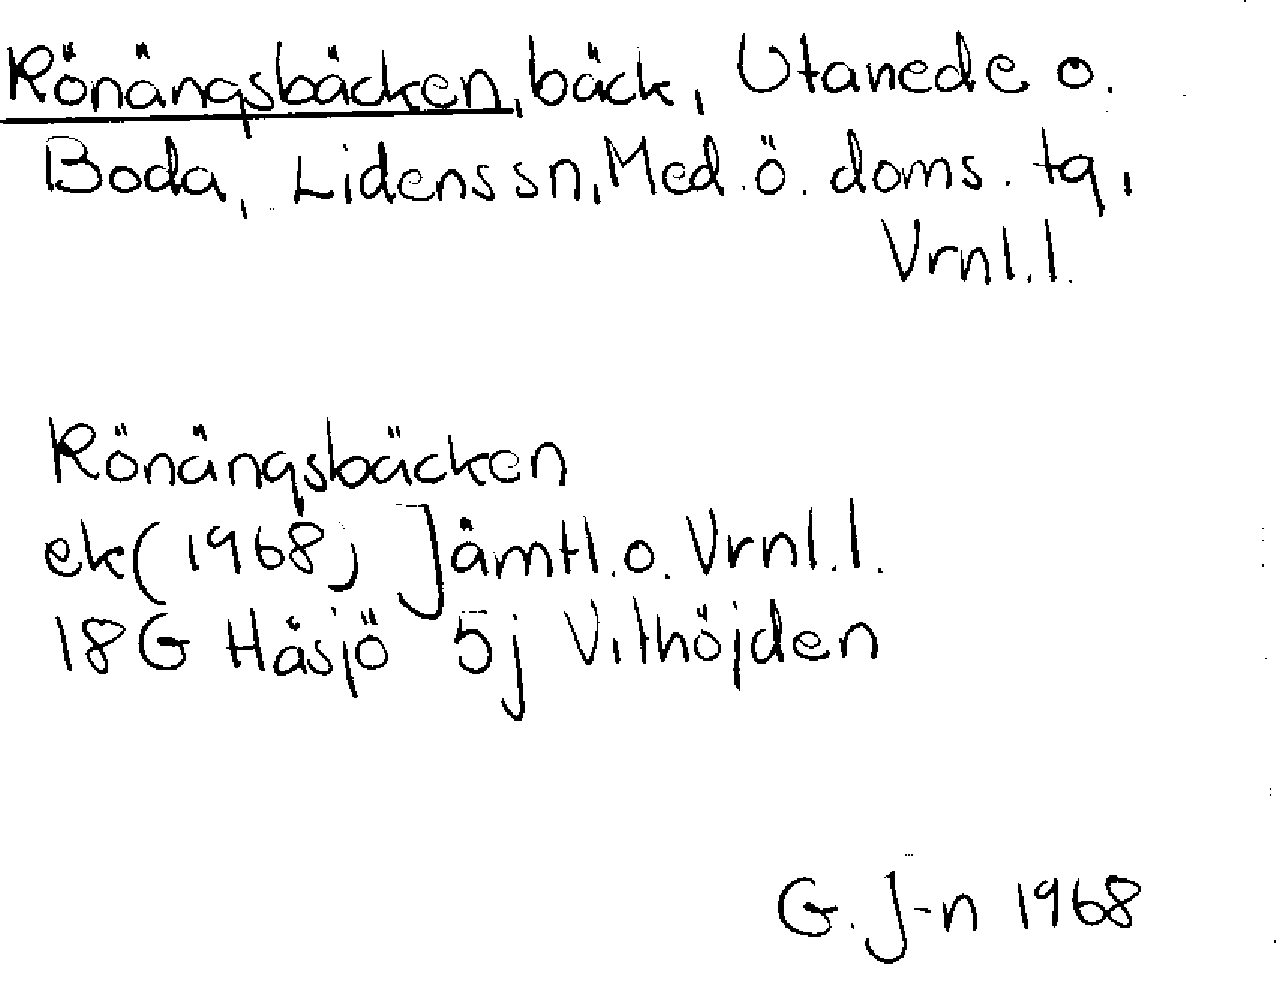 Rönängsbäcken, bäck, Utanede o.
Boda, Lidens sn, Med. ö. doms. tg,
Vrnl. l.
Rönängsbäcken
ek (1968) Jämtl. o. Vrnl. l.
18G Håsjö 5j Vithöjden
G. J-n 1968